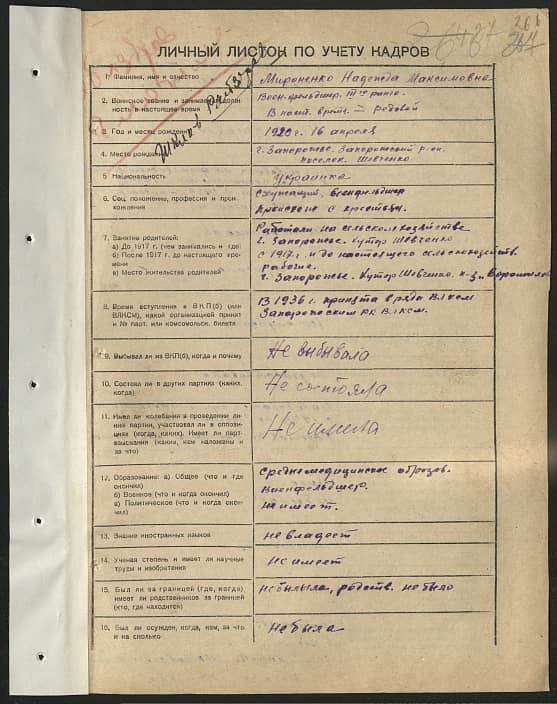 6487
26 б
ЛИЧНЫЙ ЛИСТОК ПО УЧЕТУ КАДРОВ
1. Фамилия, имя и отчество
Мироненко Надежда Максимовна
2. Воинское звание и занимаем. должность в настоящее время
Воен-фельдшер.
В наст. время — рядовой
3. Год и место рождения
1920 г. 16 апреля
4. Место рождения
г. Запорожье. Запорожский р-он.
поселок. Шевченко
5. Национальность
Украинка
6. Соц. положение, профессия и происхождение
Служащий, военфельдшер
происхожд. с крестьян.
7. Занятие родителей:
а) До 1917 г. (чем занимались и где)
б) После 1917 г. до настоящего времени
в) Место жительства родителей
Работали на сельском хозяйстве
г. Запорожье. Хутор Шевченко
с 1917 г. и до настоящего сельскохозяйств.
рабочие.
г. Запорожье. Хутор Шевченко, к-з Ворошилов
8. Время вступления в ВКП(б) (или
ВЛКСМ), какой организацией принят
и № парт. или комсомольск. билета
В 1936 г. принята в ряды ВЛКСМ
Запорожским РК ВЛКСМ.
9. Выбывал ли из ВКП(б), когда и почему
Не выбывала
10. Состоял ли в других партиях (каких,
когда)
Не состояла
11. Имел ли колебания в проведении линии партии, участвовал ли в оппозициях (когда, каких). Имеет ли партвзыскания (какие, кем наложены и
за что)
Не имела
12. Образование: а) Общее (что и где
окончил)
б) Военное (что и когда окончил)
в) Политическое (что и когда окончил)
Среднемедицинское образов.
Военфельдшер.
не имеет.
13. Знание иностранных языков
не владеет
14. Ученая степень и имеет ли научные
труды и изобретения
не имеет
15. Был ли за границей (где, когда),
имеет ли родственников за границей
(кто, где находится)
не была, родств. не было
16. Был ли осужден, когда, кем, за что
и на сколько
не была